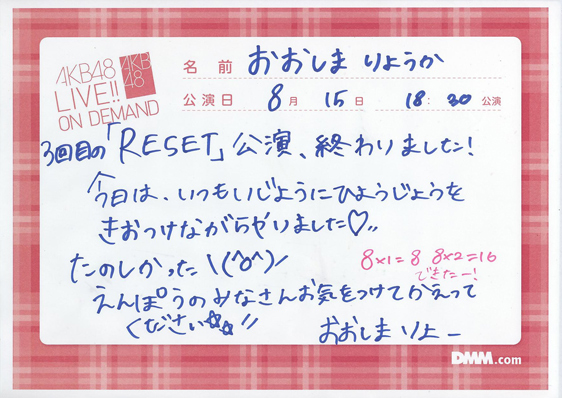 AKB48
LIVE!!
ON DEMAND
AKB
48
名前 おおしま りょうか
公演日 8月 15日 18:30 公演
3回目の「RESET」公演、終わりました!
今日は、いつもいじょうにひょうじょうを
きおつけながらやりました♡〃
たのしかった\(^o^)/
8×1=8 8×2=16
できたー!
えんぽうのみなさんお気をつけてかえって
ください☆☆!!
おおしまりよー
DMM.com